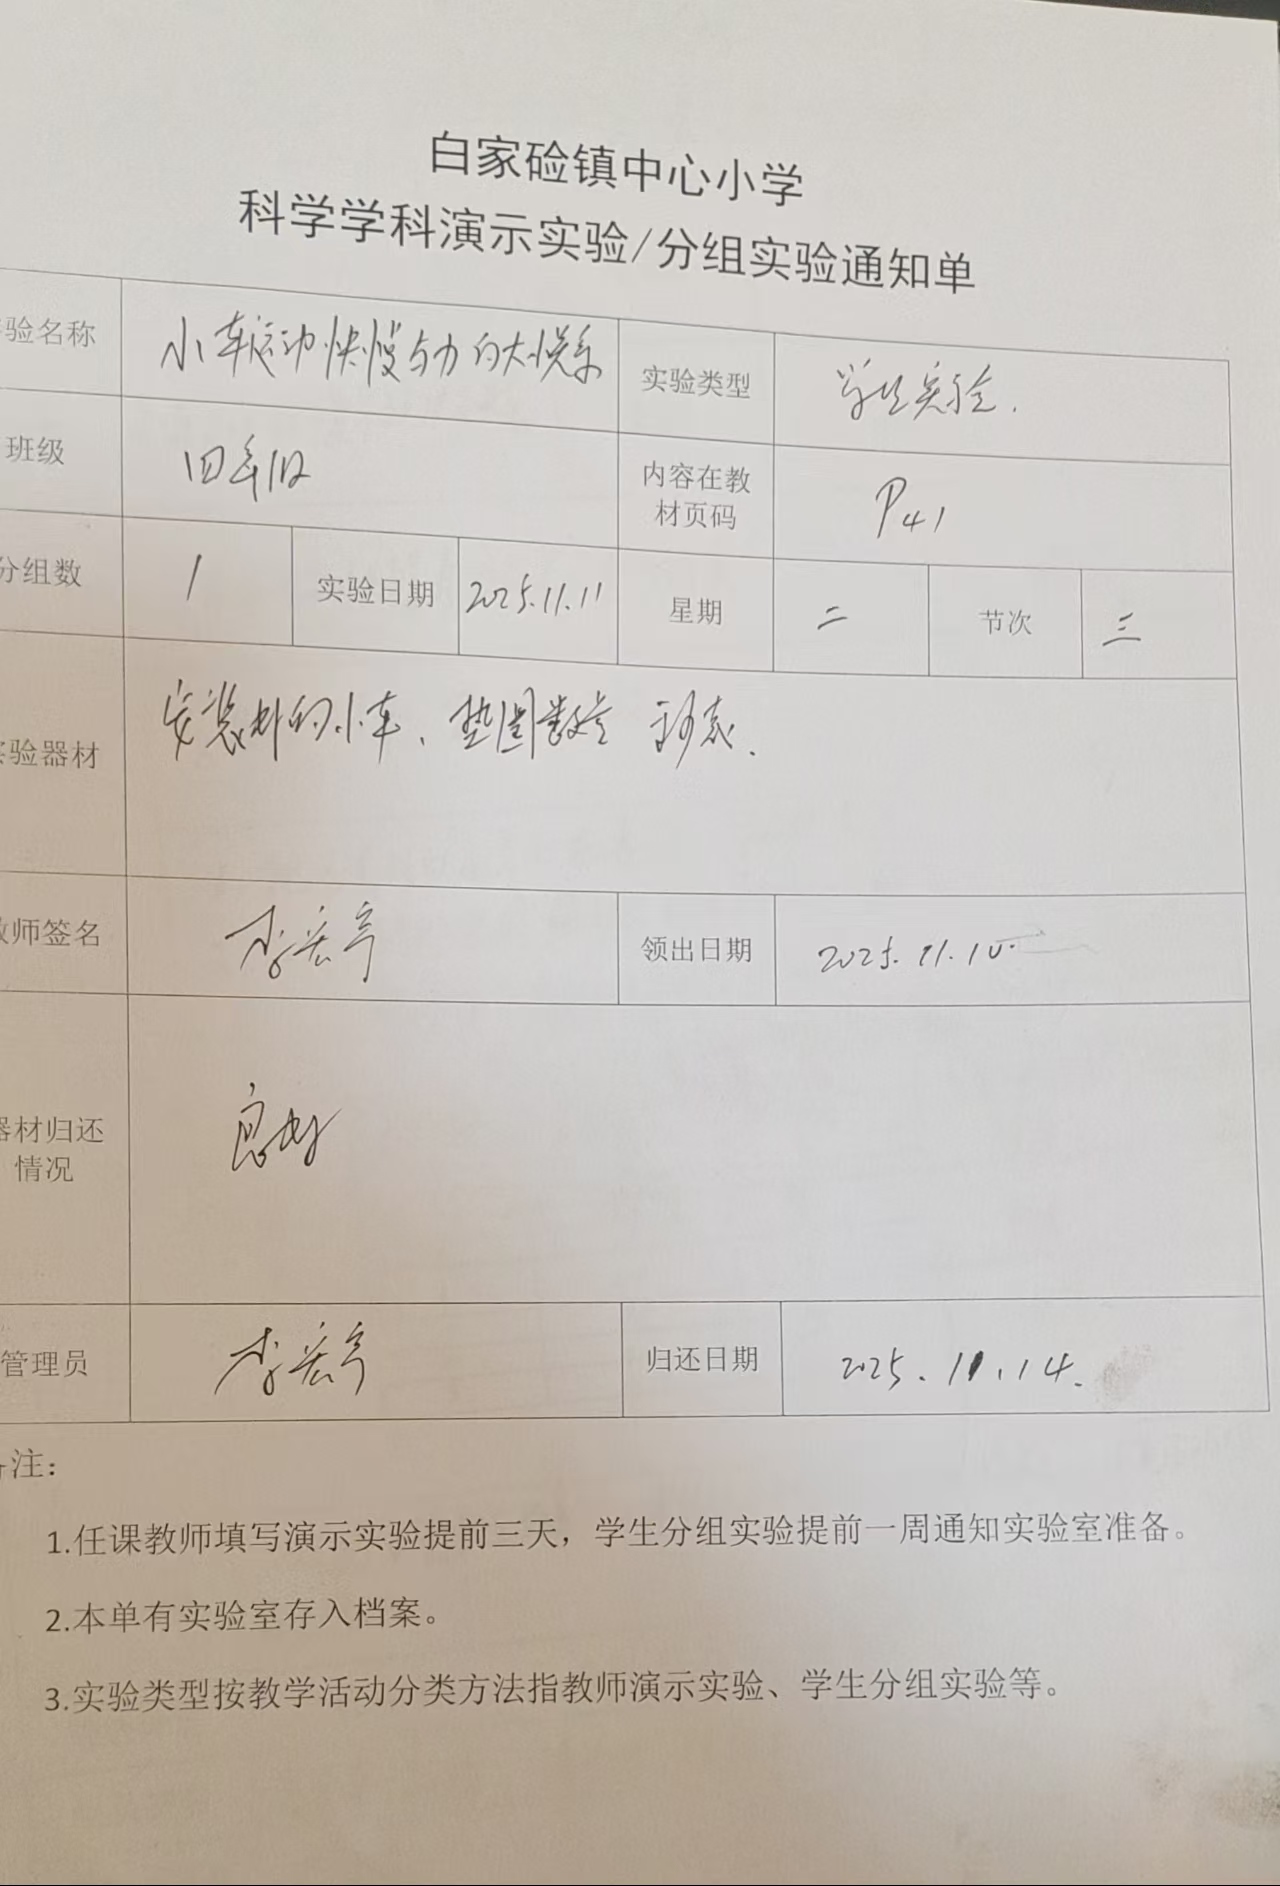 白家硷镇中心小学
科学学科演示实验/分组实验通知单
验名称 小车运动快慢与力的大小关系 实验类型 学生实验.
班级 四年级 内容在教
材页码 P41
分组数 1 实验日期 2025.11.11 星期 二 节次 三
实验器材 安装好的小车、垫圈数个 秒表.
教师签名 李宏亭 领出日期 2025.11.10.
器材归还
情况 良好
管理员 李宏亭 归还日期 2025.11.14.
备注：
1.任课教师填写演示实验提前三天，学生分组实验提前一周通知实验室准备。
2.本单有实验室存入档案。
3.实验类型按教学活动分类方法指教师演示实验、学生分组实验等。